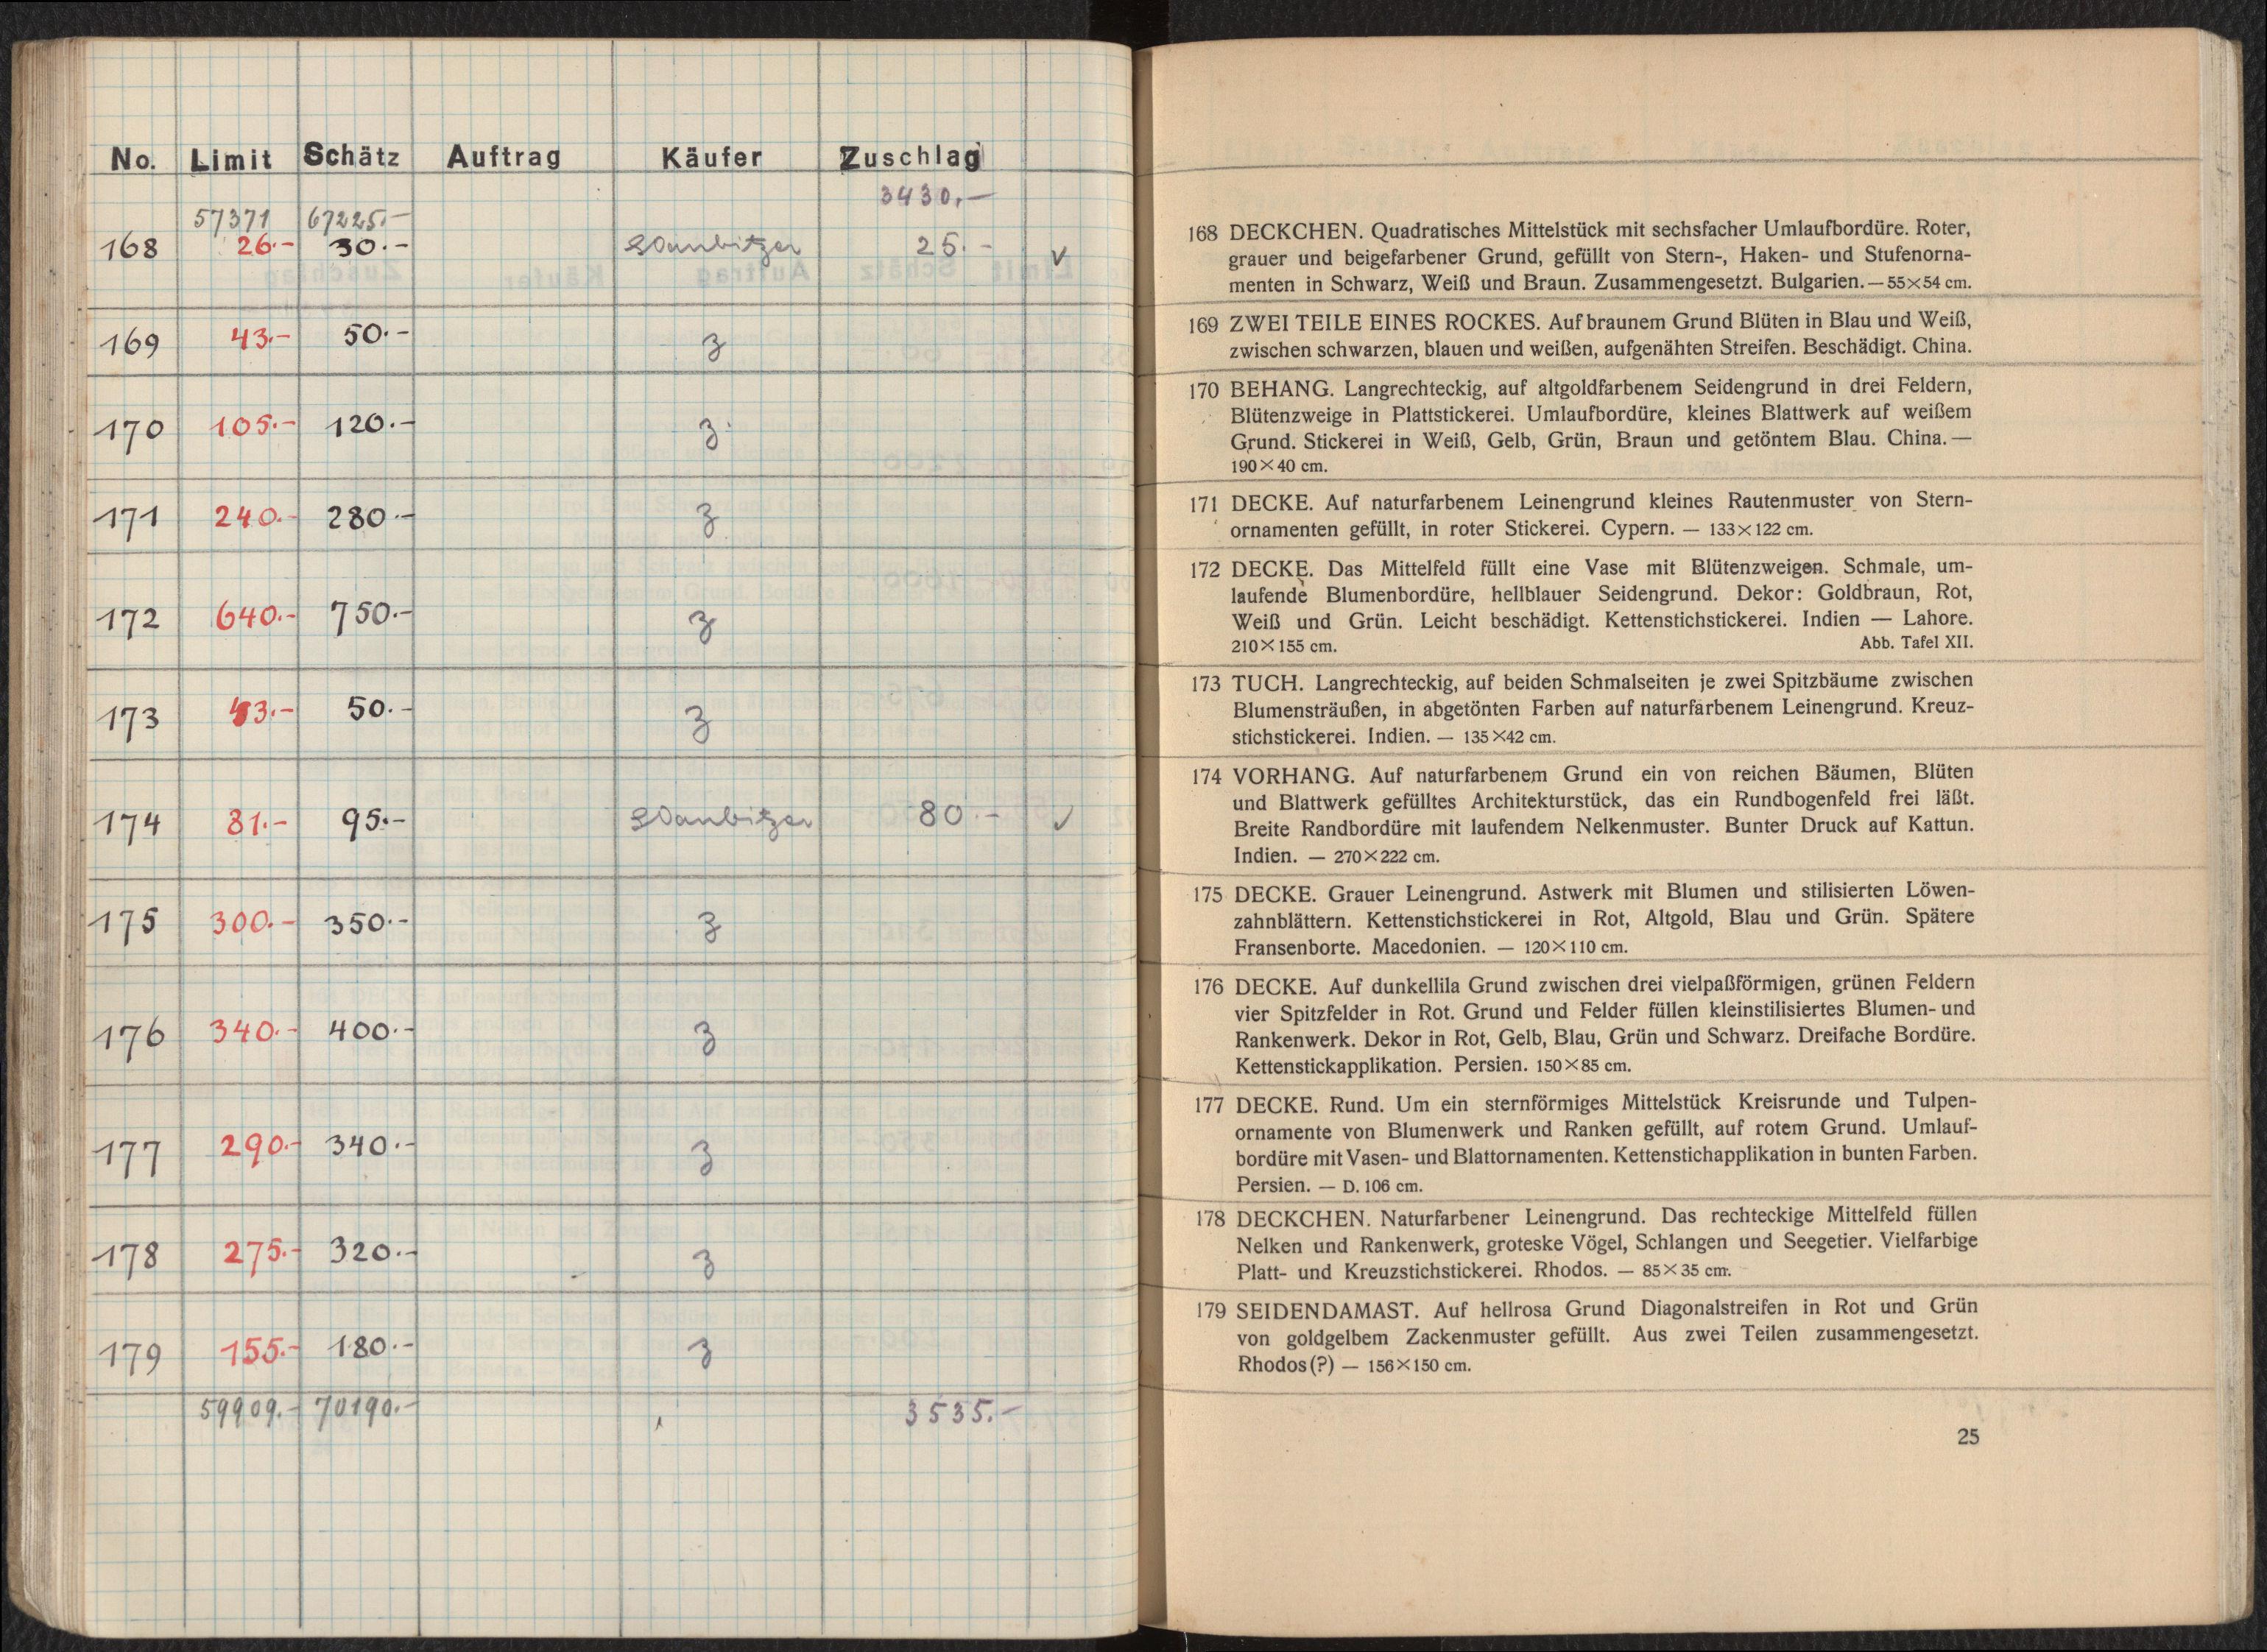 No. Limit Schätz Auftrag Käufer Zuschlag
3430.-
57371 67225.-
168 26.- 30.- 25.- ✓
169 43.- 50.- z
170 105.- 120.- z
171 240.- 280.- z
172 640.- 750.- z
173 43.- 50.- z
174 81.- 95.- 80.- ✓
175 300.- 350.- z
176 340.- 400.- z
177 290.- 340.- z
178 275.- 320.- z
179 155.- 180.- z
59909.- 70190.- 3535.-
168 DECKCHEN. Quadratisches Mittelstück mit sechsfacher Umlaufbordüre. Roter,
grauer und beigefarbener Grund, gefüllt von Stern-, Haken- und Stufenorna-
menten in Schwarz, Weiß und Braun. Zusammengesetzt. Bulgarien. — 55×54 cm.
169 ZWEI TEILE EINES ROCKES. Auf braunem Grund Blüten in Blau und Weiß,
zwischen schwarzen, blauen und weißen, aufgenähten Streifen. Beschädigt. China.
170 BEHANG. Langrechteckig, auf altgoldfarbenem Seidengrund in drei Feldern,
Blütenzweige in Plattstickerei. Umlaufbordüre, kleines Blattwerk auf weißem
Grund. Stickerei in Weiß, Gelb, Grün, Braun und getöntem Blau. China. —
190×40 cm.
171 DECKE. Auf naturfarbenem Leinengrund kleines Rautenmuster von Stern-
ornamenten gefüllt, in roter Stickerei. Cypern. — 133×122 cm.
172 DECKE. Das Mittelfeld füllt eine Vase mit Blütenzweigen. Schmale, um-
laufende Blumenbordüre, hellblauer Seidengrund. Dekor: Goldbraun, Rot,
Weiß und Grün. Leicht beschädigt. Kettenstichstickerei. Indien — Lahore.
210×155 cm. Abb. Tafel XII.
173 TUCH. Langrechteckig, auf beiden Schmalseiten je zwei Spitzbäume zwischen
Blumensträußen, in abgetönten Farben auf naturfarbenem Leinengrund. Kreuz-
stichstickerei. Indien. — 135×42 cm.
174 VORHANG. Auf naturfarbenem Grund ein von reichen Bäumen, Blüten
und Blattwerk gefülltes Architekturstück, das ein Rundbogenfeld frei läßt.
Breite Randbordüre mit laufendem Nelkenmuster. Bunter Druck auf Kattun.
Indien. — 270×222 cm.
175 DECKE. Grauer Leinengrund. Astwerk mit Blumen und stilisierten Löwen-
zahnblättern. Kettenstichstickerei in Rot, Altgold, Blau und Grün. Spätere
Fransenborte. Macedonien. — 120×110 cm.
176 DECKE. Auf dunkellila Grund zwischen drei vielpaßförmigen, grünen Feldern
vier Spitzfelder in Rot. Grund und Felder füllen kleinstilisiertes Blumen- und
Rankenwerk. Dekor in Rot, Gelb, Blau, Grün und Schwarz. Dreifache Bordüre.
Kettenstickapplikation. Persien. 150×85 cm.
177 DECKE. Rund. Um ein sternförmiges Mittelstück Kreisrunde und Tulpen-
ornamente von Blumenwerk und Ranken gefüllt, auf rotem Grund. Umlauf-
bordüre mit Vasen- und Blattornamenten. Kettenstichapplikation in bunten Farben.
Persien. — D. 106 cm.
178 DECKCHEN. Naturfarbener Leinengrund. Das rechteckige Mittelfeld füllen
Nelken und Rankenwerk, groteske Vögel, Schlangen und Seegetier. Vielfarbige
Platt- und Kreuzstichstickerei. Rhodos. — 85×35 cm.
179 SEIDENDAMAST. Auf hellrosa Grund Diagonalstreifen in Rot und Grün
von goldgelbem Zackenmuster gefüllt. Aus zwei Teilen zusammengesetzt.
Rhodos (?) — 156×150 cm.
25